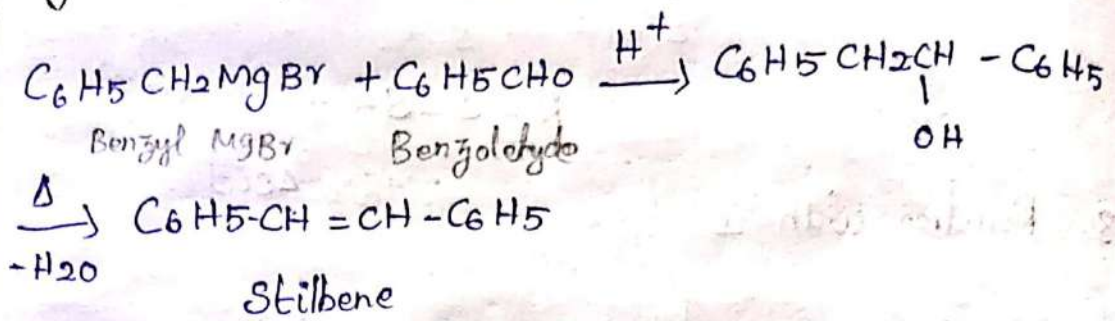 C6H5CH2MgBr + C6H5CHO H+ → C6H5CH2CH - C6H5
OH
Benzyl MgBr Benzolehyde
Δ → C6H5-CH = CH - C6H5
-H2O
Stilbene